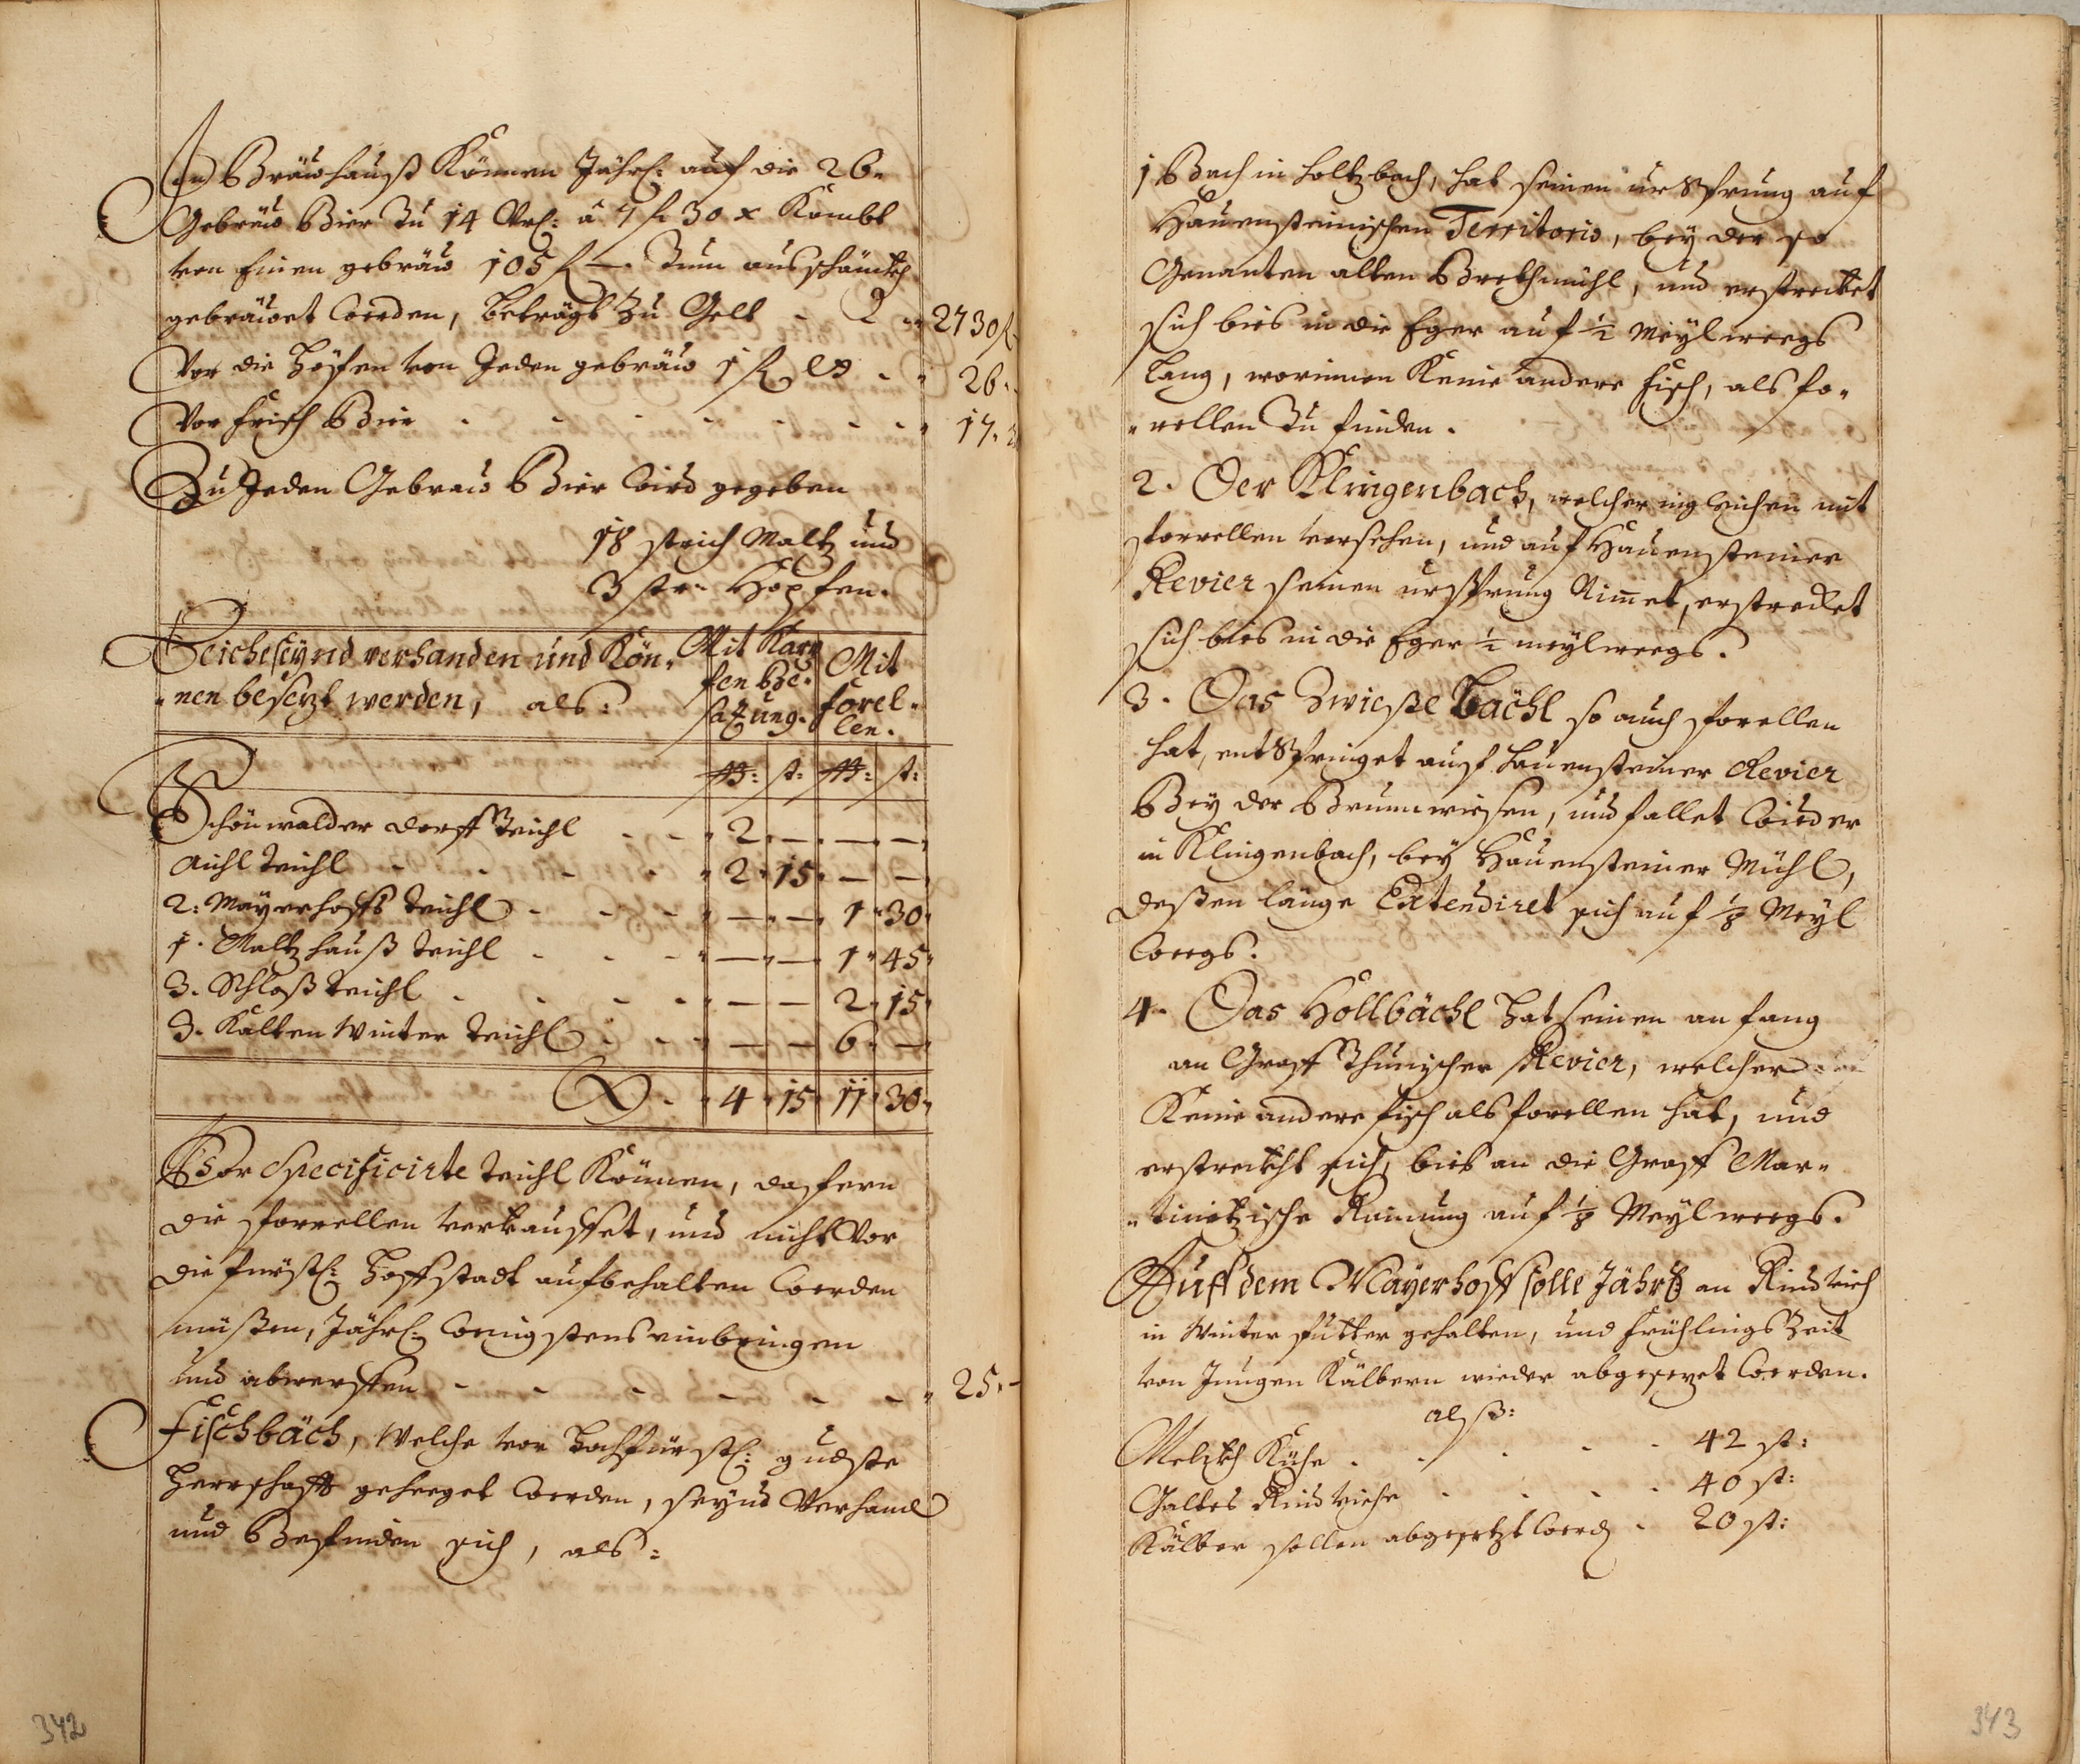 In Bräwhauß Können Jährl: auf die 26„
Gebräw Bier Zu 14 Vrl: â 7 f 30 x Kombt
von Einen gebräw 105 f —. Zum ausschänkh
gebräwet werden, beträgt zu Gelt - „ 2730 f
Vor die Höpfen von Jeden gebräw 1 f - „ 26 -
Vor frisch Bier - - - - „ 17.
Zu Jeden Gebraw Bier wird gegeben
18 strich Maltz und
3 str: Hopfen.
Teiche seynd verhanden und Kön„
„nen besezt werden, als:
Mit Karp
fen Bse„
sazung.
Mit
forel„
len.
ßß: st: ßß: st:
Schönwalder Dorff Teichl - - „ 2 „ — „ — „ — „
Aichl Teichl - - - - „ 2 „ 15 „ — „ — „
2: Mayerhoffs Teichl - - - „ — „ — „ 1 „ 30 „
1. Maltzhauß Teichl - - - „ — „ — „ 1 „ 45 „
3. Schloß Teichl - - - - „ — „ — 2 „ 15 „
3. Kalten Winter Teichl - - - „ — „ — 6 „ — „
- „ 4 „ 15 „ 11 „ 30 „
Vor Specificirte Teichl Können, dafern
die forrellen verkauffet, und nicht vor
die fürstl: Hoffstadt aufbehalten werden
müßen, Jährl: wenigstens einbringen
und abwerffen - - - - - - „ 25 „ -
Fischbäch, Welche vor Hochfürstl: gudste
Herrschafft geheeget werden, seynd Verhand
und Befinden sich, als:
342
1 Bach in holtzbach, hat seinen ursprung auf
Hauensteinischen Territorio, bey der so
Genanten alten Brethmühl, und erstrecket
sich bies in die Eger auf ½ Meyl weegs
lang, worinnen Keine andere fisch, als fo„
„rellen Zu finden.
2. Der Klingenbach, welcher ingleichen mit
forrellen versehen, und auf Hauensteiner
Revier seinen ursprung Nimmet, erstrecket
sich bies in die Eger ½ meyl weegs.
3. Das Zwießel bächl so auch forellen
hat, entspringet auf hauensteiner Revier
Bey der Brunnwiesen, und fallet wieder
in Klingenbach, bey Hauensteiner Mühl,
deßen länge Extendiret sich auf ⅛ Meyl
weegs.
4. Das Hollbächl hat seinen anfang
an Graff Thunischer Revier, welcher
Keine andere fisch als forellen hat, und
erstreckht sich, bies an die Graff Mar„
„tinitzische Rainung auf ⅛ Meyl weegs.
Auff dem Mayerhoff solle Jährl: an Rindvieh
in Winter futter gehalten, und frühlings Zeit
von Jungen Kälbern wieder abgesezet werden.
alß:
Melckh Kühe . . . - - 42 st:
Galtes Rindviehe . . . - 40 st:
Kälber sollen abgesetzt werd . 20 st:
343